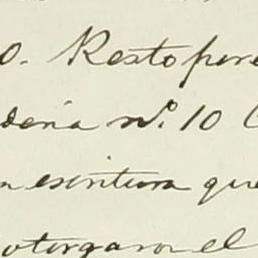 0. Resto per
deria nº. 10 C
n escritura que
otorgaron el